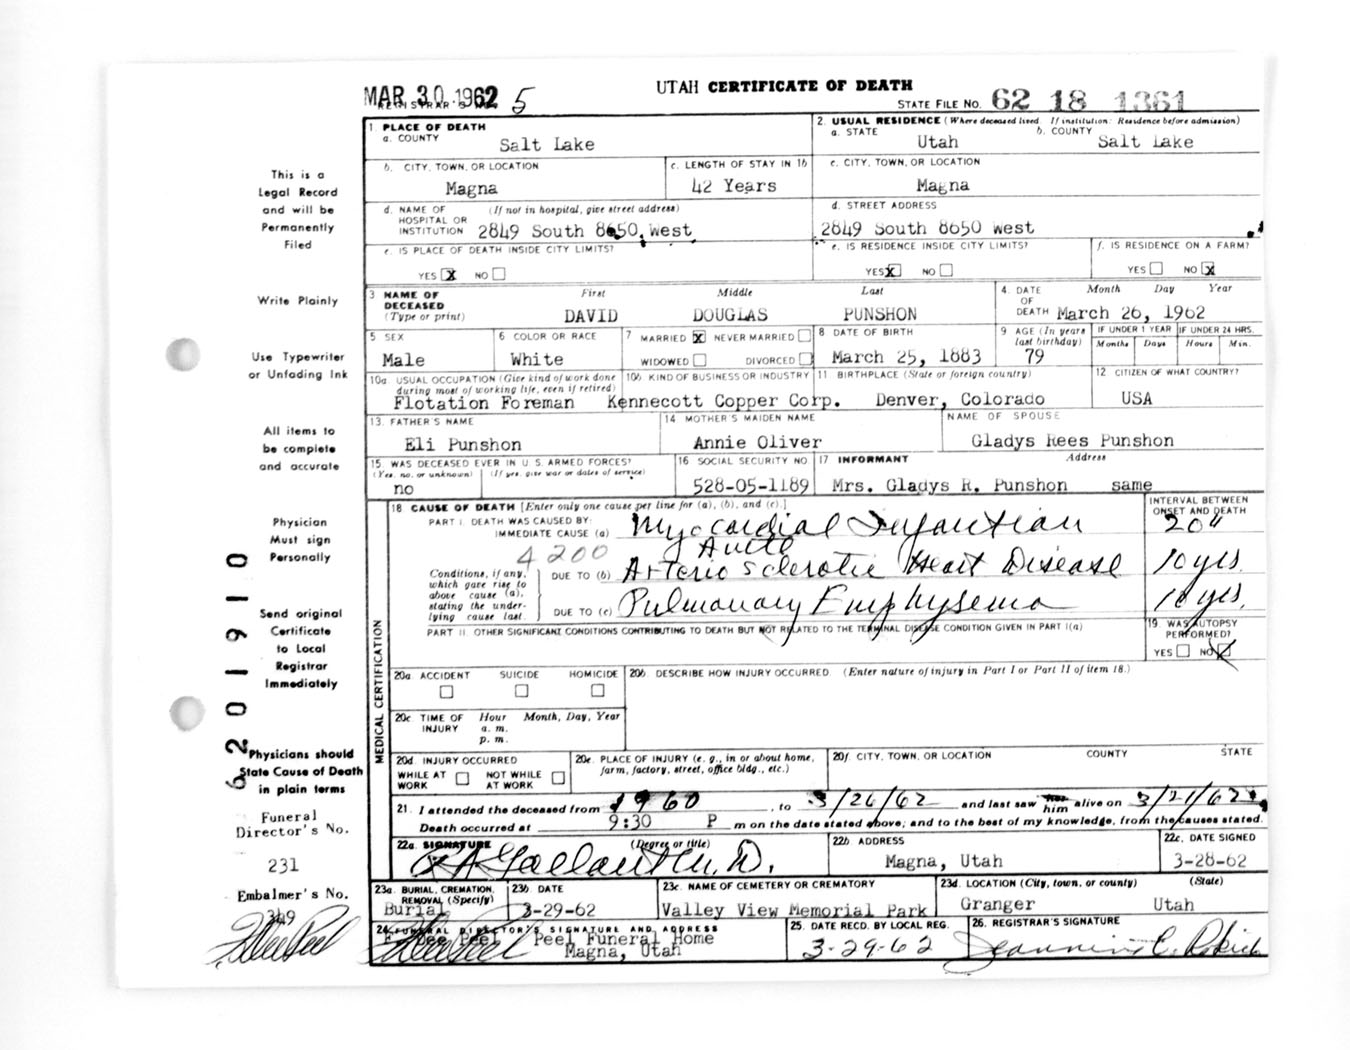 MAR 30 1962 5
UTAH CERTIFICATE OF DEATH
STATE FILE NO. 62 18 1361
1. PLACE OF DEATH
a. COUNTY
Salt Lake
2. USUAL RESIDENCE (Where deceased lived. If institution: Residence before admission)
a. STATE
Utah
b. COUNTY
Salt Lake
b. CITY, TOWN, OR LOCATION
Magna
c. LENGTH OF STAY IN 1b
42 Years
c. CITY, TOWN, OR LOCATION
Magna
d. NAME OF HOSPITAL OR INSTITUTION (If not in hospital, give street address)
2849 South 8650 West
d. STREET ADDRESS
2849 South 8650 West
e. IS PLACE OF DEATH INSIDE CITY LIMITS?
YES X NO
e. IS RESIDENCE INSIDE CITY LIMITS?
YES X NO
f. IS RESIDENCE ON A FARM?
YES NO X
3 NAME OF DECEASED (Type or print)
First Middle Last
DAVID DOUGLAS PUNSHON
4. DATE OF DEATH
Month Day Year
March 26, 1962
5 SEX
Male
6 COLOR OR RACE
White
7 MARRIED X NEVER MARRIED
WIDOWED DIVORCED
8 DATE OF BIRTH
March 25, 1883
9 AGE (In years last birthday)
79
IF UNDER 1 YEAR
Months Days
IF UNDER 24 HRS.
Hours Min.
10a. USUAL OCCUPATION (Give kind of work done during most of working life, even if retired)
Flotation Foreman
10b KIND OF BUSINESS OR INDUSTRY
Kennecott Copper Corp.
11 BIRTHPLACE (State or foreign country)
Denver, Colorado
12 CITIZEN OF WHAT COUNTRY?
USA
13. FATHER'S NAME
Eli Punshon
14 MOTHER'S MAIDEN NAME
Annie Oliver
NAME OF SPOUSE
Gladys Rees Punshon
15. WAS DECEASED EVER IN U. S. ARMED FORCES?
(Yes, no, or unknown) (If yes, give war or dates of service)
no
16 SOCIAL SECURITY NO.
528-05-1189
17 INFORMANT Address
Mrs. Gladys R. Punshon same
18 CAUSE OF DEATH [Enter only one cause per line for (a), (b), and (c).]
INTERVAL BETWEEN ONSET AND DEATH
PART I. DEATH WAS CAUSED BY:
IMMEDIATE CAUSE (a) Myocardial Infarction
Acute
4200
Conditions, if any, which gave rise to above cause (a), stating the underlying cause last.
DUE TO (b) Arterio sclerotic Heart Disease 10 yrs
DUE TO (c) Pulmonary Emphysema 10 yrs.
PART II. OTHER SIGNIFICANT CONDITIONS CONTRIBUTING TO DEATH BUT NOT RELATED TO THE TERMINAL DISEASE CONDITION GIVEN IN PART I(a)
19 WAS AUTOPSY PERFORMED?
YES NO X
20a ACCIDENT SUICIDE HOMICIDE
20b. DESCRIBE HOW INJURY OCCURRED (Enter nature of injury in Part I or Part II of item 18.)
20c TIME OF INJURY Hour Month, Day, Year
a. m.
p. m.
20d. INJURY OCCURRED
WHILE AT WORK NOT WHILE AT WORK
20e. PLACE OF INJURY (e. g., in or about home, farm, factory, street, office bldg., etc.)
20f. CITY, TOWN, OR LOCATION COUNTY STATE
MEDICAL CERTIFICATION
21. I attended the deceased from 1960, to 3/26/62 and last saw him alive on 3/21/62
Death occurred at 9:30 P m on the date stated above; and to the best of my knowledge, from the causes stated.
22a. SIGNATURE (Degree or title)
Gallant M. D.
22b ADDRESS
Magna, Utah
22c. DATE SIGNED
3-28-62
23a. BURIAL, CREMATION, REMOVAL (Specify)
Burial
23b DATE
3-29-62
23c. NAME OF CEMETERY OR CREMATORY
Valley View Memorial Park
23d. LOCATION (City, town, or county) (State)
Granger Utah
24. FUNERAL DIRECTOR'S SIGNATURE AND ADDRESS
Peel Funeral Home
Magna, Utah
25. DATE RECD. BY LOCAL REG.
3-29-62
26. REGISTRAR'S SIGNATURE
This is a
Legal Record
and will be
Permanently
Filed
Write Plainly
Use Typewriter
or Unfading Ink
All items to
be complete
and accurate
Physician
Must sign
Personally
Send original
Certificate
to Local
Registrar
Immediately
Physicians should
State Cause of Death
in plain terms
Funeral
Director's No.
231
Embalmer's No.
349
6201910